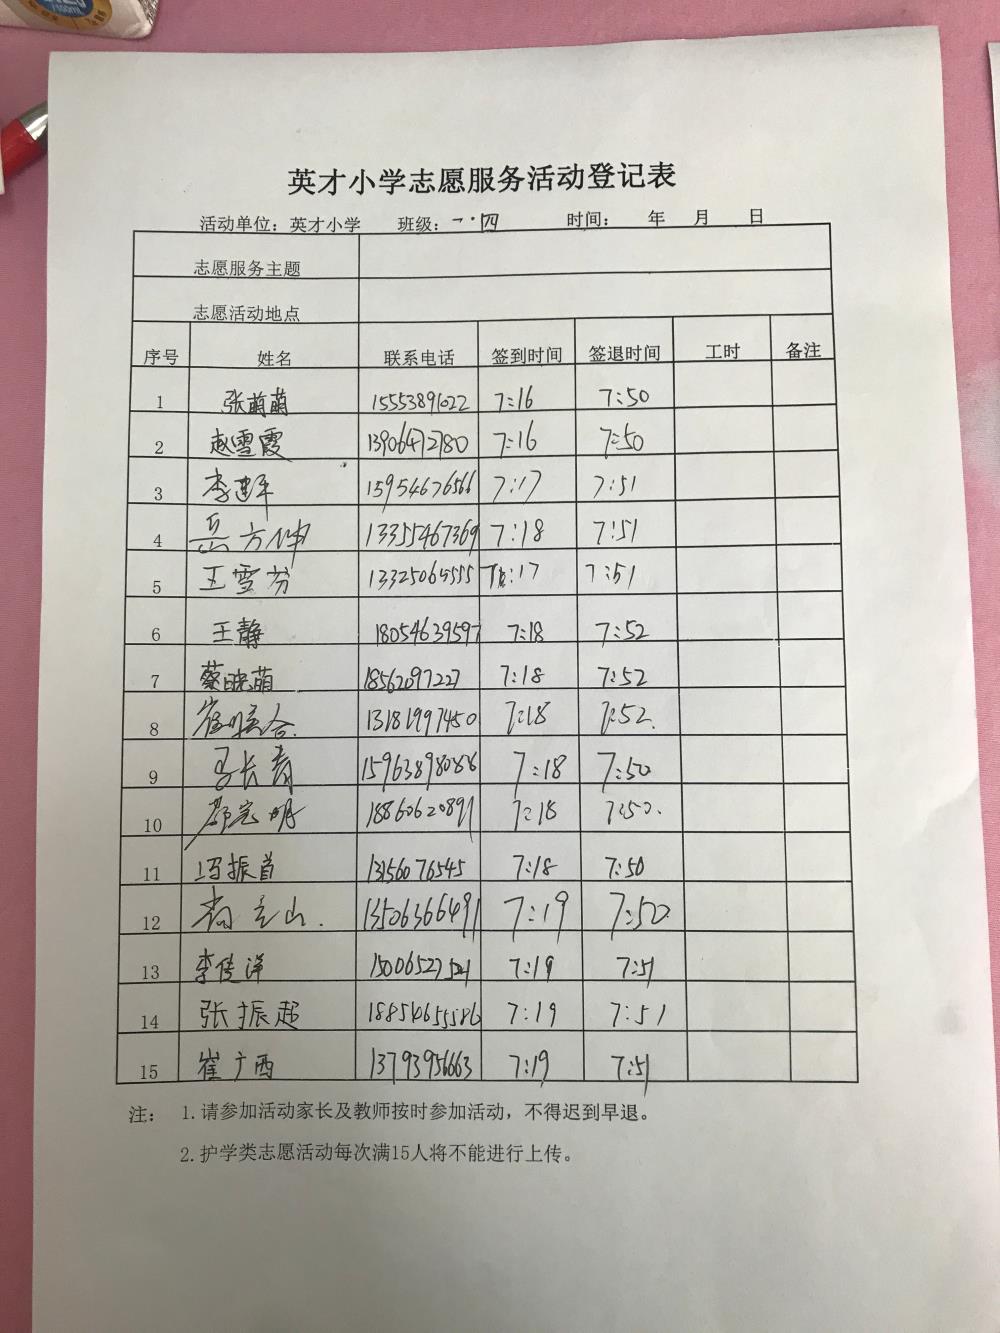 英才小学志愿服务活动登记表
活动单位：英才小学 班级：一.四 时间： 年 月 日
志愿服务主题
志愿活动地点
序号 姓名 联系电话 签到时间 签退时间 工时 备注
1 张萌萌 15553891022 7:16 7:50
2 赵雪霞 13906472780 7:16 7:50
3 李建军 15954676566 7:17 7:51
4 岳方伸 13355467369 7:18 7:51
5 王雪芬 13325065555 7:17 7:51
6 王静 18054639597 7:18 7:52
7 蔡晓萌 18562097227 7:18 7:52
8 崔 合 13181997450 7:18 7:52.
9 长青 15963898088 7:18 7:50
10 明 18860620891 7:18 7:50.
11 冯振首 13156076545 7:18 7:50
12 山. 13506366491 7:19 7:50
13 李传洋 15006527521 7:19 7:51
14 张振超 18854655586 7:19 7:51
15 崔广西 13793956663 7:19 7:51
注： 1.请参加活动家长及教师按时参加活动，不得迟到早退。
2.护学类志愿活动每次满15人将不能进行上传。